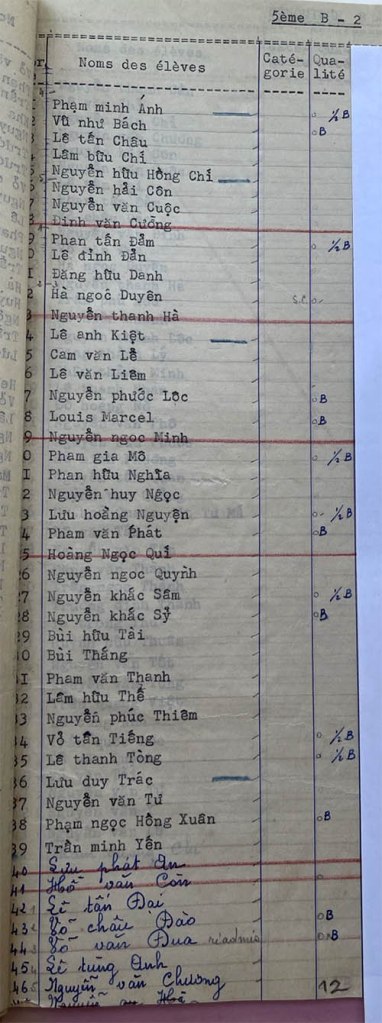 5ème B - 2
Noms des élèves Caté- Qua-
gorie lité
Phạm minh Ánh ½ B
2 Vũ như Bách B
3 Lê tấn Châu
Lâm bửu Chí
Nguyễn hữu Hồng Chí
Nguyễn hải Côn
7 Nguyễn văn Cuộc
Đinh văn Cường
9 Phan tấn Đảm ½ B
0 Lê đình Đản
I Đăng hữu Danh
2 Hà ngoc Duyên S.C
3 Nguyễn thanh Hà
4 Lê anh Kiệt
5 Cam văn Lễ
6 Lê văn Liêm
7 Nguyễn phước Lôc B
8 Louis Marcel B
9 Nguyễn ngoc Minh
0 Pham gia Mô ½ B
I Phan hữu Nghĩa
2 Nguyễn huy Ngọc
3 Lưu hoàng Nguyện ½ B
4 Pham văn Phát B
5 Hoàng Ngọc Quí
26 Nguyễn ngoc Quỳnh
27 Nguyễn khắc Sâm ½ B
28 Nguyễn khắc Sỹ B
29 Bùi hữu Tài
30 Bùi Thắng
I Pham văn Thanh
32 Lâm hữu Thế
33 Nguyễn phúc Thiêm
34 Võ tấn Tiếng ½ B
35 Lê thanh Tòng ½ B
36 Lưu duy Trác
37 Nguyễn văn Tư
38 Phạm ngọc Hồng Xuân B
39 Trần minh Yến
40 Lưu phát An
41 Hồ văn Còn
42 Lê tấn Đai
43 Võ châu Đào B
44 Võ văn Đua réadmis B
45 Lê tùng Anh
46 Nguyễn văn Chương 12
Nguyễn